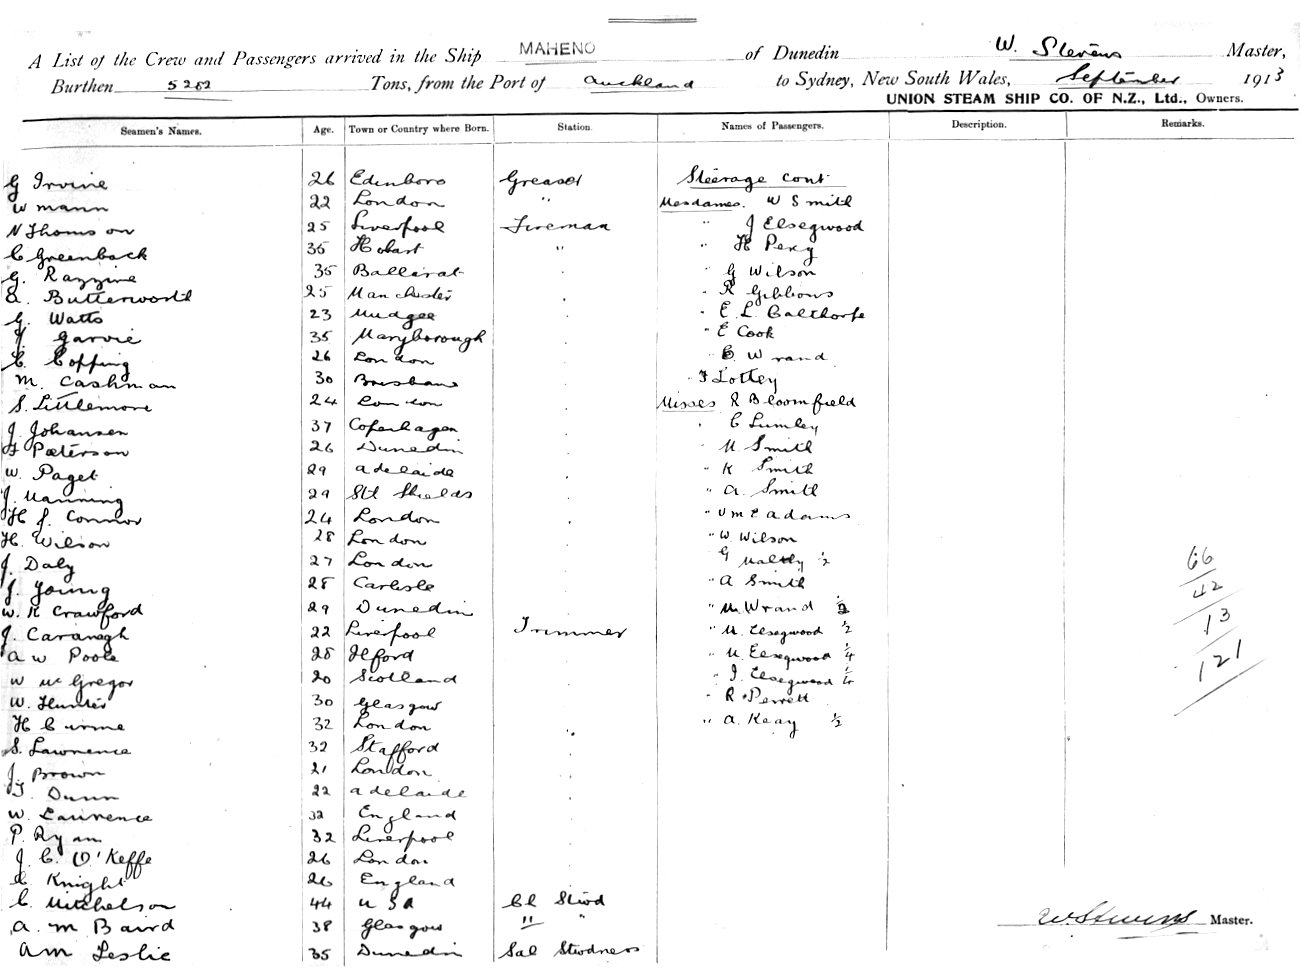 A List of the Crew and Passengers arrived in the Ship MAHENO of Dunedin W. Stevens Master,
Burthen 5282 Tons, from the Port of Auckland to Sydney, New South Wales, September 1913
UNION STEAM SHIP CO. OF N.Z., Ltd., Owners.
Seamen's Names. Age. Town or Country where Born. Station Names of Passengers. Description. Remarks.
G Irvine 26 Edinboro Greaser Steerage cont
W Mann 22 London " Mesdames. W Smith
N Thomson 25 Liverpool Fireman " J Elsegwood
C Greenback 35 Hobart " " H Percy
G. Razzine 35 Ballarat " G Wilson
A. Butterworth 25 Manchester " R Gibbons
G. Watts 23 Mudgee " E. L. Calthorpe
J Garvie 35 Maryborough " E Cook
C. Copping 26 London " C Wrand
M. Cashman 30 Brisbane " F Lottey
S. Littlemore 24 London Misses R Bloomfield
J. Johansen 37 Copenhagen " C Lumley
Paeterson 26 Dunedin " M Smith
W. Paget 29 Adelaide " K Smith
J. Manning 29 Sth Shields " A. Smith
H J. Connor 24 London " V M E Adams
H. Wilson 28 London " W. Wilson
J. Daly 27 London G 1/2
J. Young 28 Carlisle " A Smith
W. R Crawford 29 Dunedin " M. Wrand 1/2
J. Cavanagh 22 Liverpool Trimmer " M. Elsegwood 1/2
A W Poole 28 Ilford " M. Elsegwood 1/4
W McGregor 20 Scotland " J. Elsegwood 1/4
W. Hunter 30 Glasgow " R. Perrett
H Curme 32 London " A. Keay 1/2
S. Lawrence 32 Stafford
J. Brown 21 London
T. Dunn 22 Adelaide
W. Laurence 32 England
P. Ryan 32 Liverpool
J. C. O'Keffe 26 London
C Knight 26 England
C. Mitchelson 44 U S A Cl Stwd
A. M Baird 38 Glasgow " "
A M Leslie 35 Dunedin Sal Stwdness
66
42
13
121
W. Stevens Master.